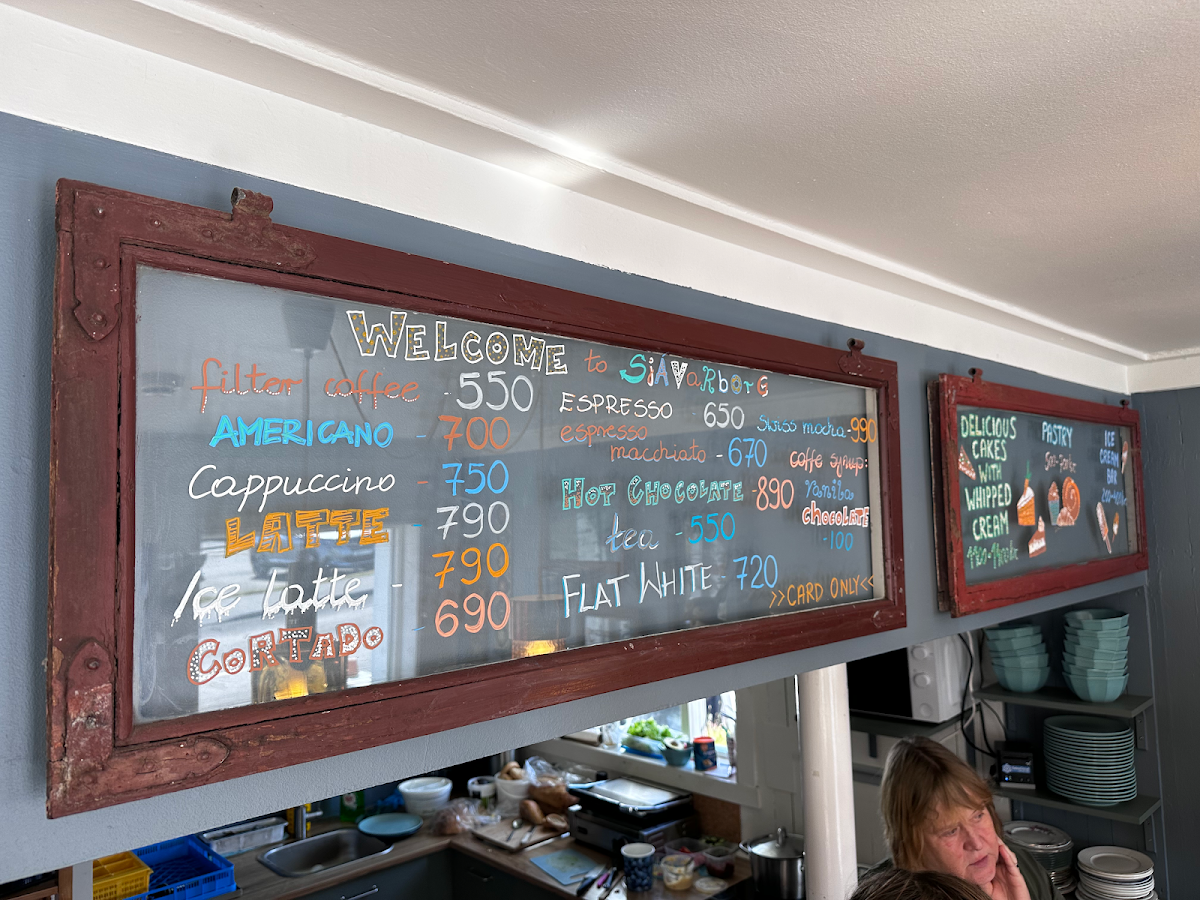 WELCOME to SjÁVaRborG
filter coffee - 550
AMERICANO - 700
Cappuccino - 750
LATTE - 790
Ice latte - 790
CoRTADo - 690
ESPRESSO 650
espresso
macchiato - 670
HOT CHOCOLATE -890
tea - 550
FLAT WHITE - 720
Swiss mocha -990
coffe syrup:
Vanilla
chocolate
-100
>>CARD ONLY<<
DELICIOUS
CAKES
WITH
WHIPPED
CREAM
PASTRY
ICE
CREAM
BAR